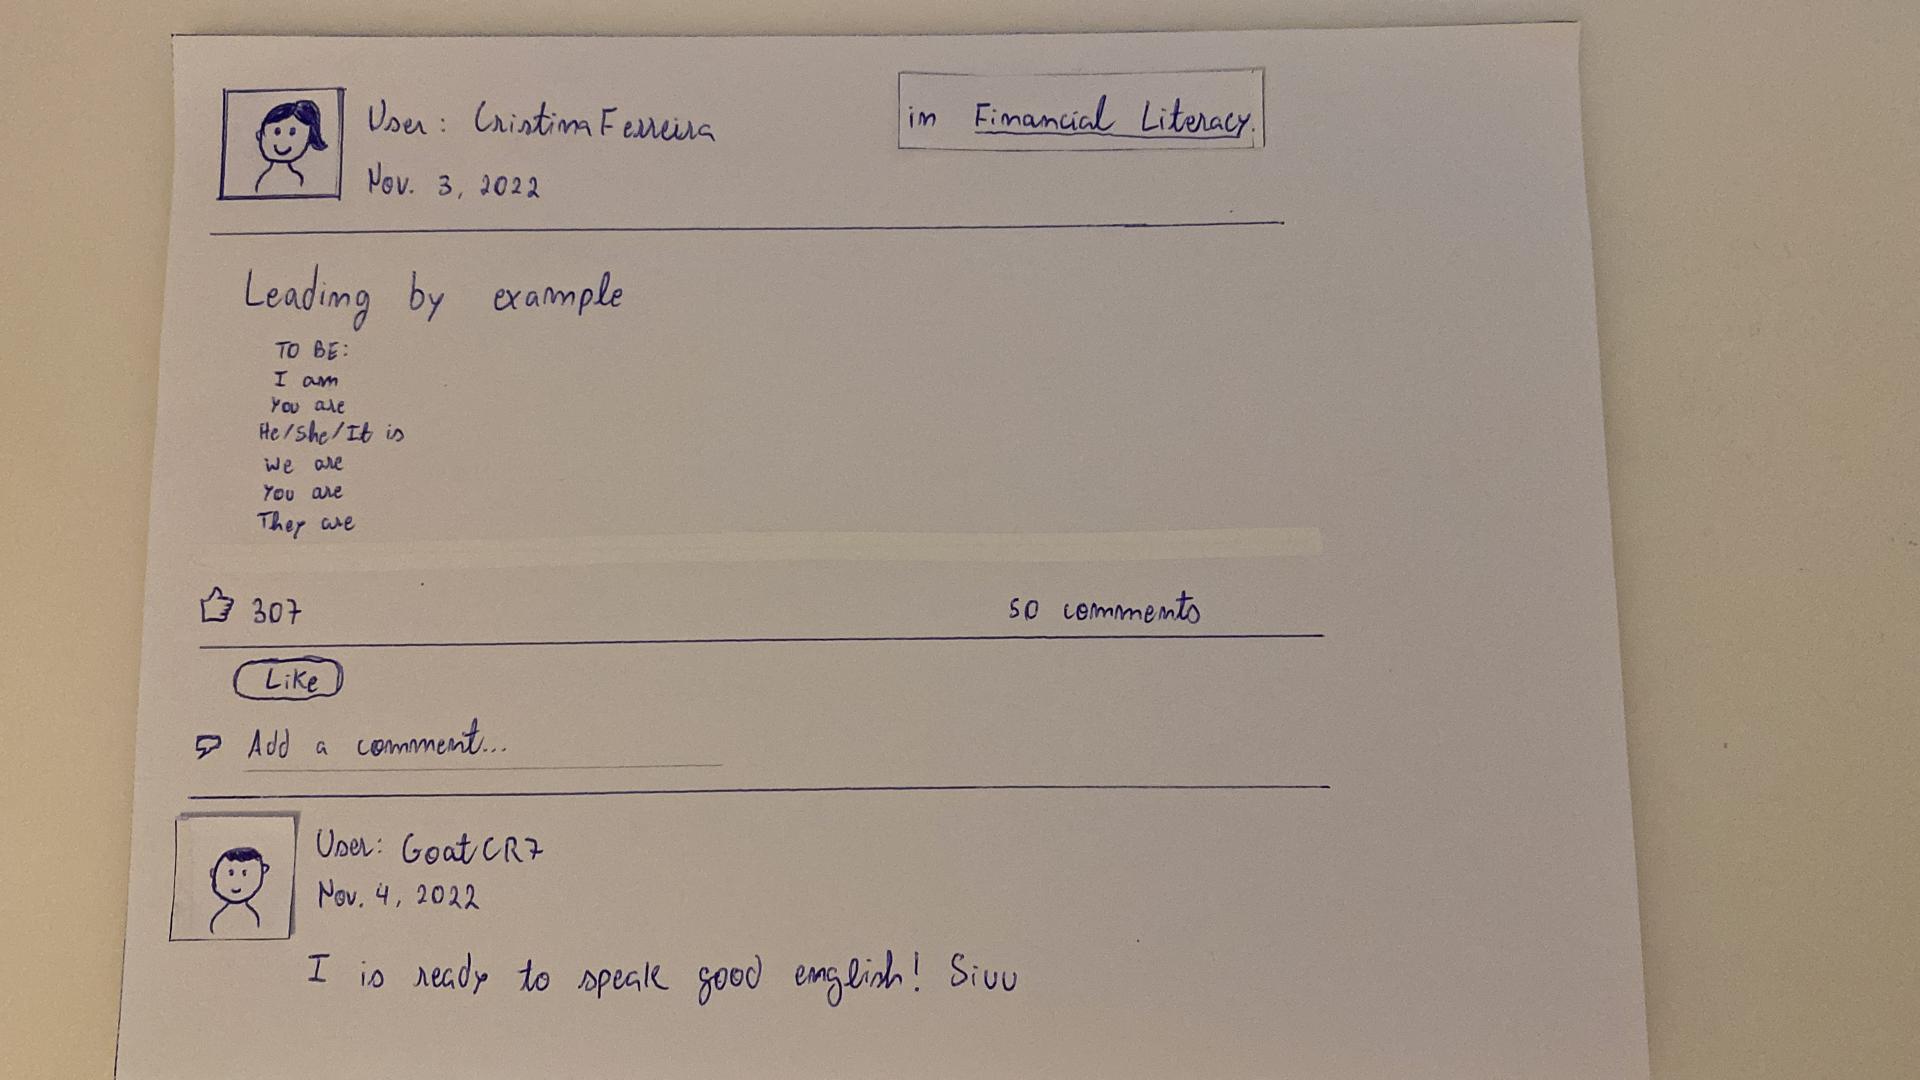 User: CristinaFerreira
in Financial Literacy.
Nov. 3, 2022
Leading by example
TO BE:
I am
You are
He/She/It is
We are
You are
They are
307
50 comments
Like
Add a comment...
User: GoatCR7
Nov. 4, 2022
I is ready to speak good english! Siuu